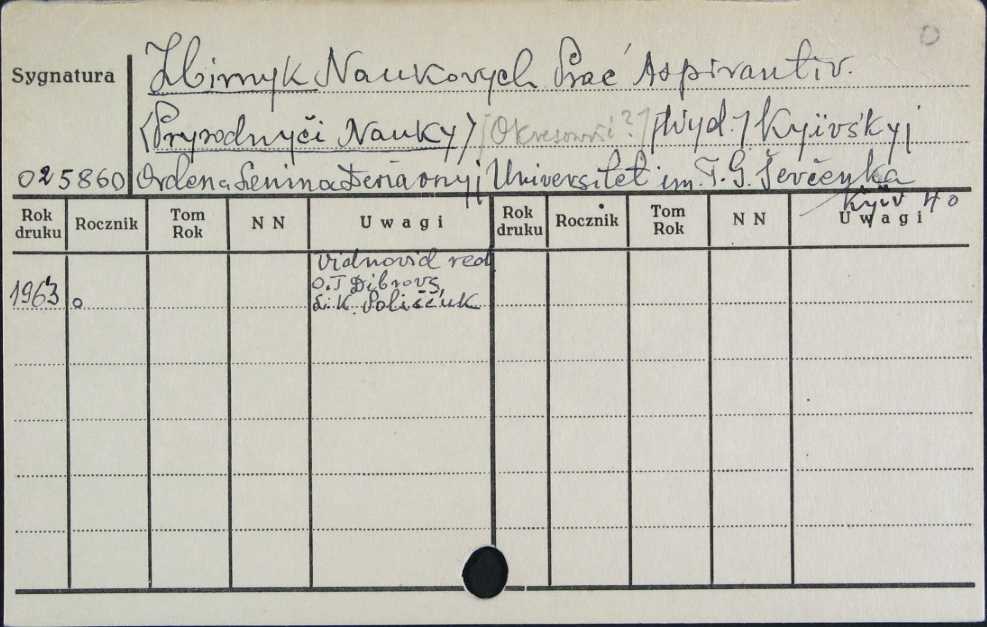 0
Sygnatura
Zbirnyk Naukovych Prać Aspirantiv.
(Pryrodnyči Nauky) [Okresowość?] [Wyd.] Kyïvśkyj
025860 Ordena Lenina Deržavnyj Universitet im. T. G. Ševčenka
Kyïv 40
Rok druku Rocznik Tom Rok N N Uwagi Rok druku Rocznik Tom Rok N N Uwagi
Vidnovid red
1963 0 O. T Dibrova,
K. Poliščuk